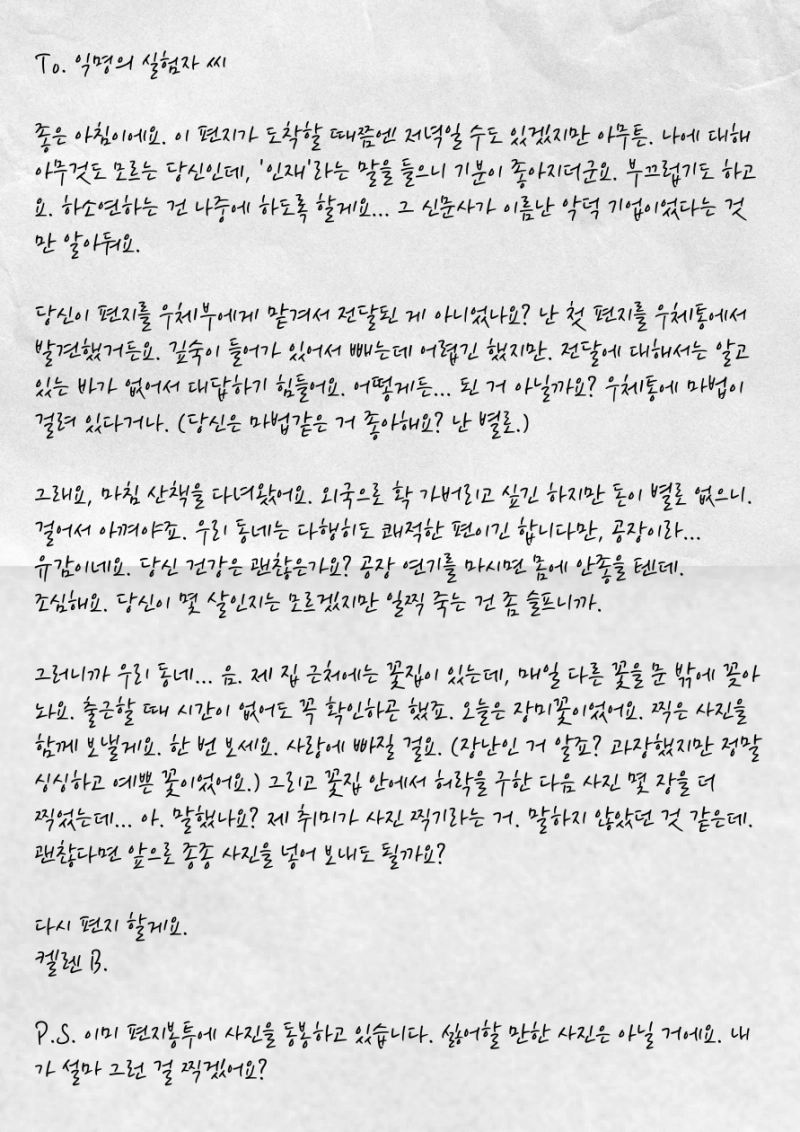 To. 익명의 실험자 씨
좋은 아침이에요. 이 편지가 도착할 때쯤엔 저녁일 수도 있겠지만 아무튼. 나에 대해
아무것도 모르는 당신인데, '인재'라는 말을 들으니 기분이 좋아지더군요. 부끄럽기도 하고
요. 하소연하는 건 나중에 하도록 할게요... 그 신문사가 이름난 악덕 기업이었다는 것
만 알아둬요.
당신이 편지를 우체부에게 맡겨서 전달된 게 아니었나요? 난 첫 편지를 우체통에서
발견했거든요. 깊숙이 들어가 있어서 빼는데 어렵긴 했지만. 전달에 대해서는 알고
있는 바가 없어서 대답하기 힘들어요. 어떻게든... 된 거 아닐까요? 우체통에 마법이
걸려 있다거나. (당신은 마법같은 거 좋아해요? 난 별로.)
그래요, 마침 산책을 다녀왔어요. 외국으로 확 가버리고 싶긴 하지만 돈이 별로 없으니.
걸어서 아껴야죠. 우리 동네는 다행히도 쾌적한 편이긴 합니다만, 공장이라...
유감이네요. 당신 건강은 괜찮은가요? 공장 연기를 마시면 몸에 안좋을 텐데.
조심해요. 당신이 몇 살인지는 모르겠지만 일찍 죽는 건 좀 슬프니까.
그러니까 우리 동네... 음. 제 집 근처에는 꽃집이 있는데, 매일 다른 꽃을 문 밖에 꽂아
놔요. 출근할 때 시간이 없어도 꼭 확인하곤 했죠. 오늘은 장미꽃이었어요. 찍은 사진을
함께 보낼게요. 한 번 보세요. 사랑에 빠질 걸요. (장난인 거 알죠? 과장했지만 정말
싱싱하고 예쁜 꽃이었어요.) 그리고 꽃집 안에서 허락을 구한 다음 사진 몇 장을 더
찍었는데... 아. 말했나요? 제 취미가 사진 찍기라는 거. 말하지 않았던 것 같은데.
괜찮다면 앞으로 종종 사진을 넣어 보내도 될까요?
다시 편지 할게요.
켈렌 B.
P.S. 이미 편지봉투에 사진을 동봉하고 있습니다. 싫어할 만한 사진은 아닐 거에요. 내
가 설마 그런 걸 찍겠어요?